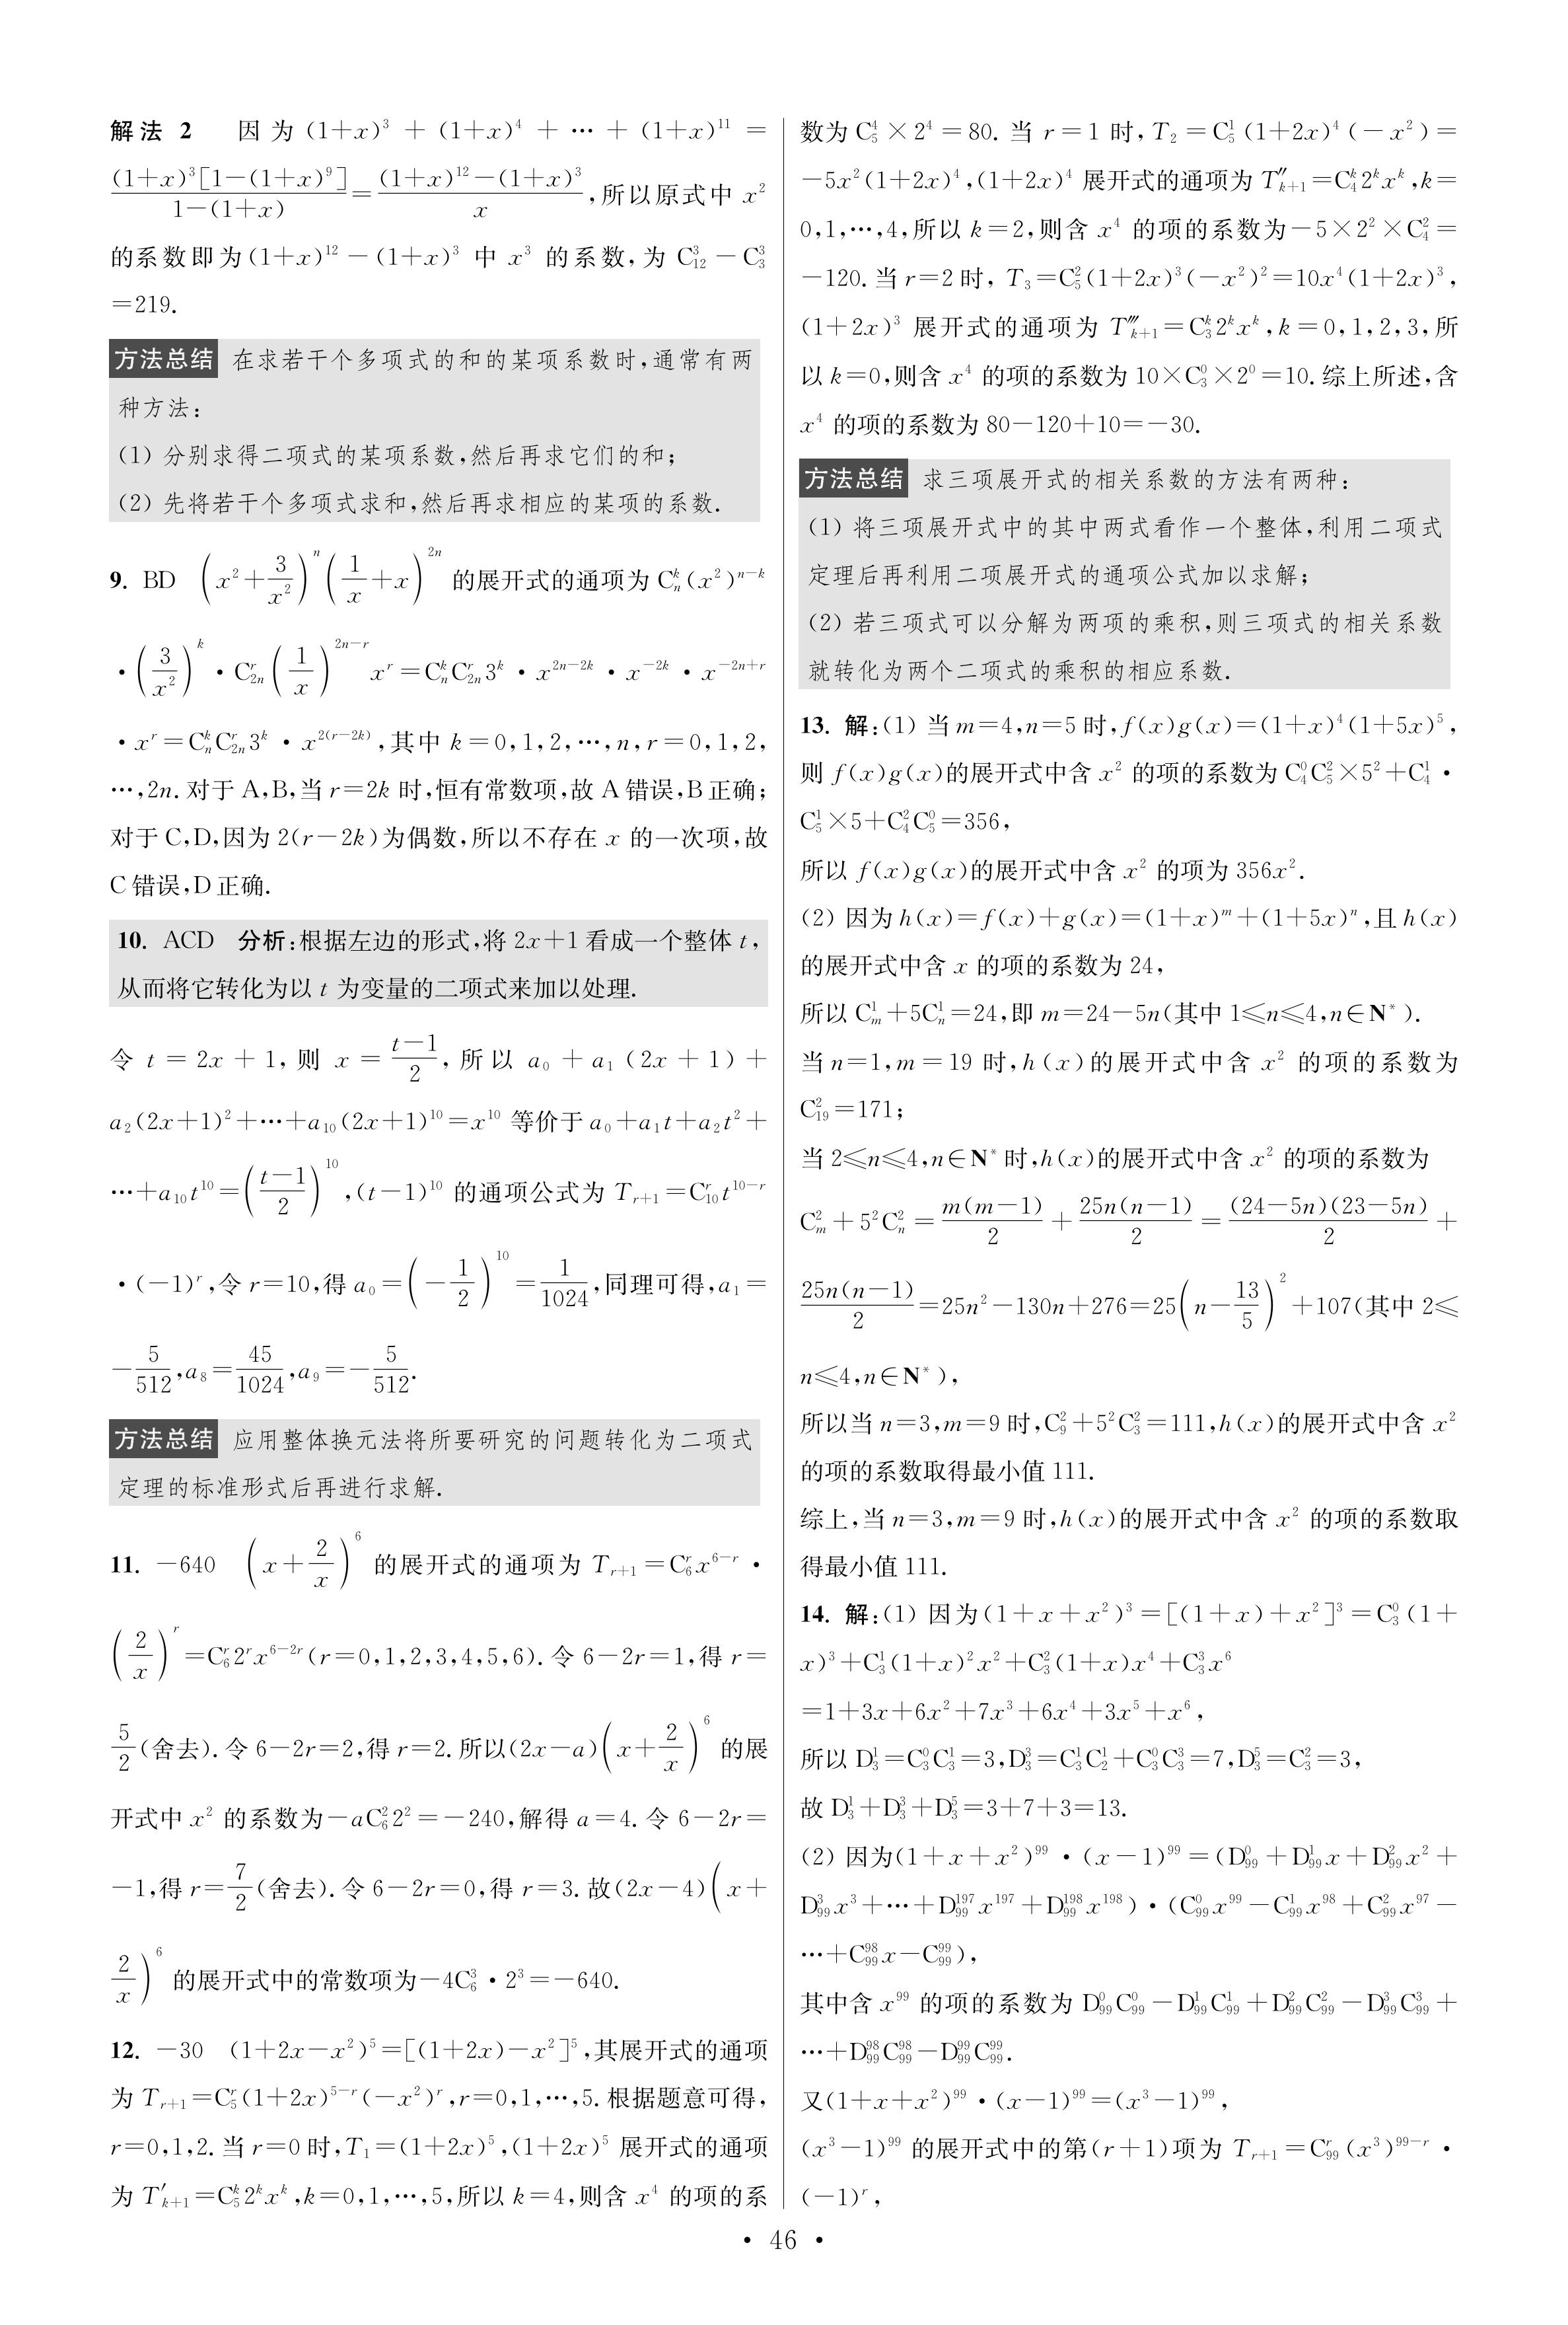 解法 2 因为 (1+x)³ + (1+x)⁴ + … + (1+x)¹¹ =
\frac{(1+x)³[1-(1+x)⁹]}{1-(1+x)}=\frac{(1+x)¹²-(1+x)³}{x},所以原式中 x²
的系数即为(1+x)¹²-(1+x)³ 中 x³ 的系数,为 C_{12}^{3}-C_{3}^{3}
=219.
方法总结 在求若干个多项式的和的某项系数时,通常有两
种方法:
(1) 分别求得二项式的某项系数,然后再求它们的和;
(2) 先将若干个多项式求和,然后再求相应的某项的系数.
9. BD (x²+\frac{3}{x²})^{n}(\frac{1}{x}+x)^{2n} 的展开式的通项为 C_{n}^{k}(x²)^{n-k}
·(\frac{3}{x²})^{k}·C_{2n}^{r}(\frac{1}{x})^{2n-r}x^{r}=C_{n}^{k}C_{2n}^{r}3^{k}·x^{2n-2k}·x^{-2k}·x^{-2n+r}
·x^{r}=C_{n}^{k}C_{2n}^{r}3^{k}·x^{2(r-2k)},其中 k=0,1,2,…,n,r=0,1,2,
…,2n.对于 A,B,当 r=2k 时,恒有常数项,故 A 错误,B 正确;
对于 C,D,因为 2(r-2k)为偶数,所以不存在 x 的一次项,故
C 错误,D 正确.
10. ACD 分析:根据左边的形式,将 2x+1 看成一个整体 t,
从而将它转化为以 t 为变量的二项式来加以处理.
令 t = 2x + 1, 则 x = \frac{t-1}{2}, 所以 a₀ + a₁ (2x + 1) +
a₂(2x+1)²+…+a₁₀(2x+1)¹⁰=x¹⁰ 等价于 a₀+a₁t+a₂t²+
…+a₁₀t¹⁰=(\frac{t-1}{2})^{10},(t-1)¹⁰ 的通项公式为 T_{r+1}=C_{10}^{r}t^{10-r}
·(-1)^{r},令 r=10,得 a₀=(-\frac{1}{2})^{10}=\frac{1}{1024},同理可得,a₁=
-\frac{5}{512},a₈=\frac{45}{1024},a₉=-\frac{5}{512}.
方法总结 应用整体换元法将所要研究的问题转化为二项式
定理的标准形式后再进行求解.
11. -640 (x+\frac{2}{x})^{6} 的展开式的通项为 T_{r+1}=C_{6}^{r}x^{6-r}·
(\frac{2}{x})^{r}=C_{6}^{r}2^{r}x^{6-2r}(r=0,1,2,3,4,5,6).令 6-2r=1,得 r=
\frac{5}{2}(舍去).令 6-2r=2,得 r=2.所以(2x-a)(x+\frac{2}{x})^{6} 的展
开式中 x² 的系数为-aC_{6}^{2}2²=-240,解得 a=4.令 6-2r=
-1,得 r=\frac{7}{2}(舍去).令 6-2r=0,得 r=3.故(2x-4)(x+
\frac{2}{x})^{6} 的展开式中的常数项为-4C_{6}^{3}·2³=-640.
12. -30 (1+2x-x²)⁵=[(1+2x)-x²]⁵,其展开式的通项
为 T_{r+1}=C_{5}^{r}(1+2x)^{5-r}(-x²)^{r},r=0,1,…,5.根据题意可得,
r=0,1,2.当 r=0 时,T₁=(1+2x)⁵,(1+2x)⁵ 展开式的通项
为 T′_{k+1}=C_{5}^{k}2^{k}x^{k},k=0,1,…,5,所以 k=4,则含 x⁴ 的项的系
数为 C_{5}^{4}×2⁴=80.当 r=1 时,T₂=C_{5}^{1}(1+2x)⁴(-x²)=
-5x²(1+2x)⁴,(1+2x)⁴ 展开式的通项为 T″_{k+1}=C_{4}^{k}2^{k}x^{k},k=
0,1,…,4,所以 k=2,则含 x⁴ 的项的系数为-5×2²×C_{4}^{2}=
-120.当 r=2 时,T₃=C_{5}^{2}(1+2x)³(-x²)²=10x⁴(1+2x)³,
(1+2x)³ 展开式的通项为 T‴_{k+1}=C_{3}^{k}2^{k}x^{k},k=0,1,2,3,所
以 k=0,则含 x⁴ 的项的系数为 10×C_{3}^{0}×2⁰=10.综上所述,含
x⁴ 的项的系数为 80-120+10=-30.
方法总结 求三项展开式的相关系数的方法有两种:
(1) 将三项展开式中的其中两式看作一个整体,利用二项式
定理后再利用二项展开式的通项公式加以求解;
(2) 若三项式可以分解为两项的乘积,则三项式的相关系数
就转化为两个二项式的乘积的相应系数.
13. 解:(1) 当 m=4,n=5 时,f(x)g(x)=(1+x)⁴(1+5x)⁵,
则 f(x)g(x)的展开式中含 x² 的项的系数为 C_{4}^{0}C_{5}^{2}×5²+C_{4}^{1}·
C_{5}^{1}×5+C_{4}^{2}C_{5}^{0}=356,
所以 f(x)g(x)的展开式中含 x² 的项为 356x².
(2) 因为 h(x)=f(x)+g(x)=(1+x)^{m}+(1+5x)^{n},且 h(x)
的展开式中含 x 的项的系数为 24,
所以 C_{m}^{1}+5C_{n}^{1}=24,即 m=24-5n(其中 1≤n≤4,n∈N*).
当 n=1,m=19 时,h(x)的展开式中含 x² 的项的系数为
C_{19}^{2}=171;
当 2≤n≤4,n∈N*时,h(x)的展开式中含 x² 的项的系数为
C_{m}^{2}+5²C_{n}^{2}=\frac{m(m-1)}{2}+\frac{25n(n-1)}{2}=\frac{(24-5n)(23-5n)}{2}+
\frac{25n(n-1)}{2}=25n²-130n+276=25(n-\frac{13}{5})²+107(其中 2≤
n≤4,n∈N*),
所以当 n=3,m=9 时,C_{9}^{2}+5²C_{3}^{2}=111,h(x)的展开式中含 x²
的项的系数取得最小值 111.
综上,当 n=3,m=9 时,h(x)的展开式中含 x² 的项的系数取
得最小值 111.
14. 解:(1) 因为(1+x+x²)³=[(1+x)+x²]³=C_{3}^{0}(1+
x)³+C_{3}^{1}(1+x)²x²+C_{3}^{2}(1+x)x⁴+C_{3}^{3}x⁶
=1+3x+6x²+7x³+6x⁴+3x⁵+x⁶,
所以 D_{3}^{1}=C_{3}^{0}C_{3}^{1}=3,D_{3}^{3}=C_{3}^{1}C_{2}^{1}+C_{3}^{0}C_{3}^{3}=7,D_{3}^{5}=C_{3}^{2}=3,
故 D_{3}^{1}+D_{3}^{3}+D_{3}^{5}=3+7+3=13.
(2) 因为(1+x+x²)⁹⁹·(x-1)⁹⁹=(D_{99}^{0}+D_{99}^{1}x+D_{99}^{2}x²+
D_{99}^{3}x³+…+D_{99}^{197}x¹⁹⁷+D_{99}^{198}x¹⁹⁸)·(C_{99}^{0}x⁹⁹-C_{99}^{1}x⁹⁸+C_{99}^{2}x⁹⁷-
…+C_{99}^{98}x-C_{99}^{99}),
其中含 x⁹⁹ 的项的系数为 D_{99}^{0}C_{99}^{0}-D_{99}^{1}C_{99}^{1}+D_{99}^{2}C_{99}^{2}-D_{99}^{3}C_{99}^{3}+
…+D_{99}^{98}C_{99}^{98}-D_{99}^{99}C_{99}^{99}.
又(1+x+x²)⁹⁹·(x-1)⁹⁹=(x³-1)⁹⁹,
(x³-1)⁹⁹ 的展开式中的第(r+1)项为 T_{r+1}=C_{99}^{r}(x³)^{99-r}·
(-1)^{r},
· 46 ·